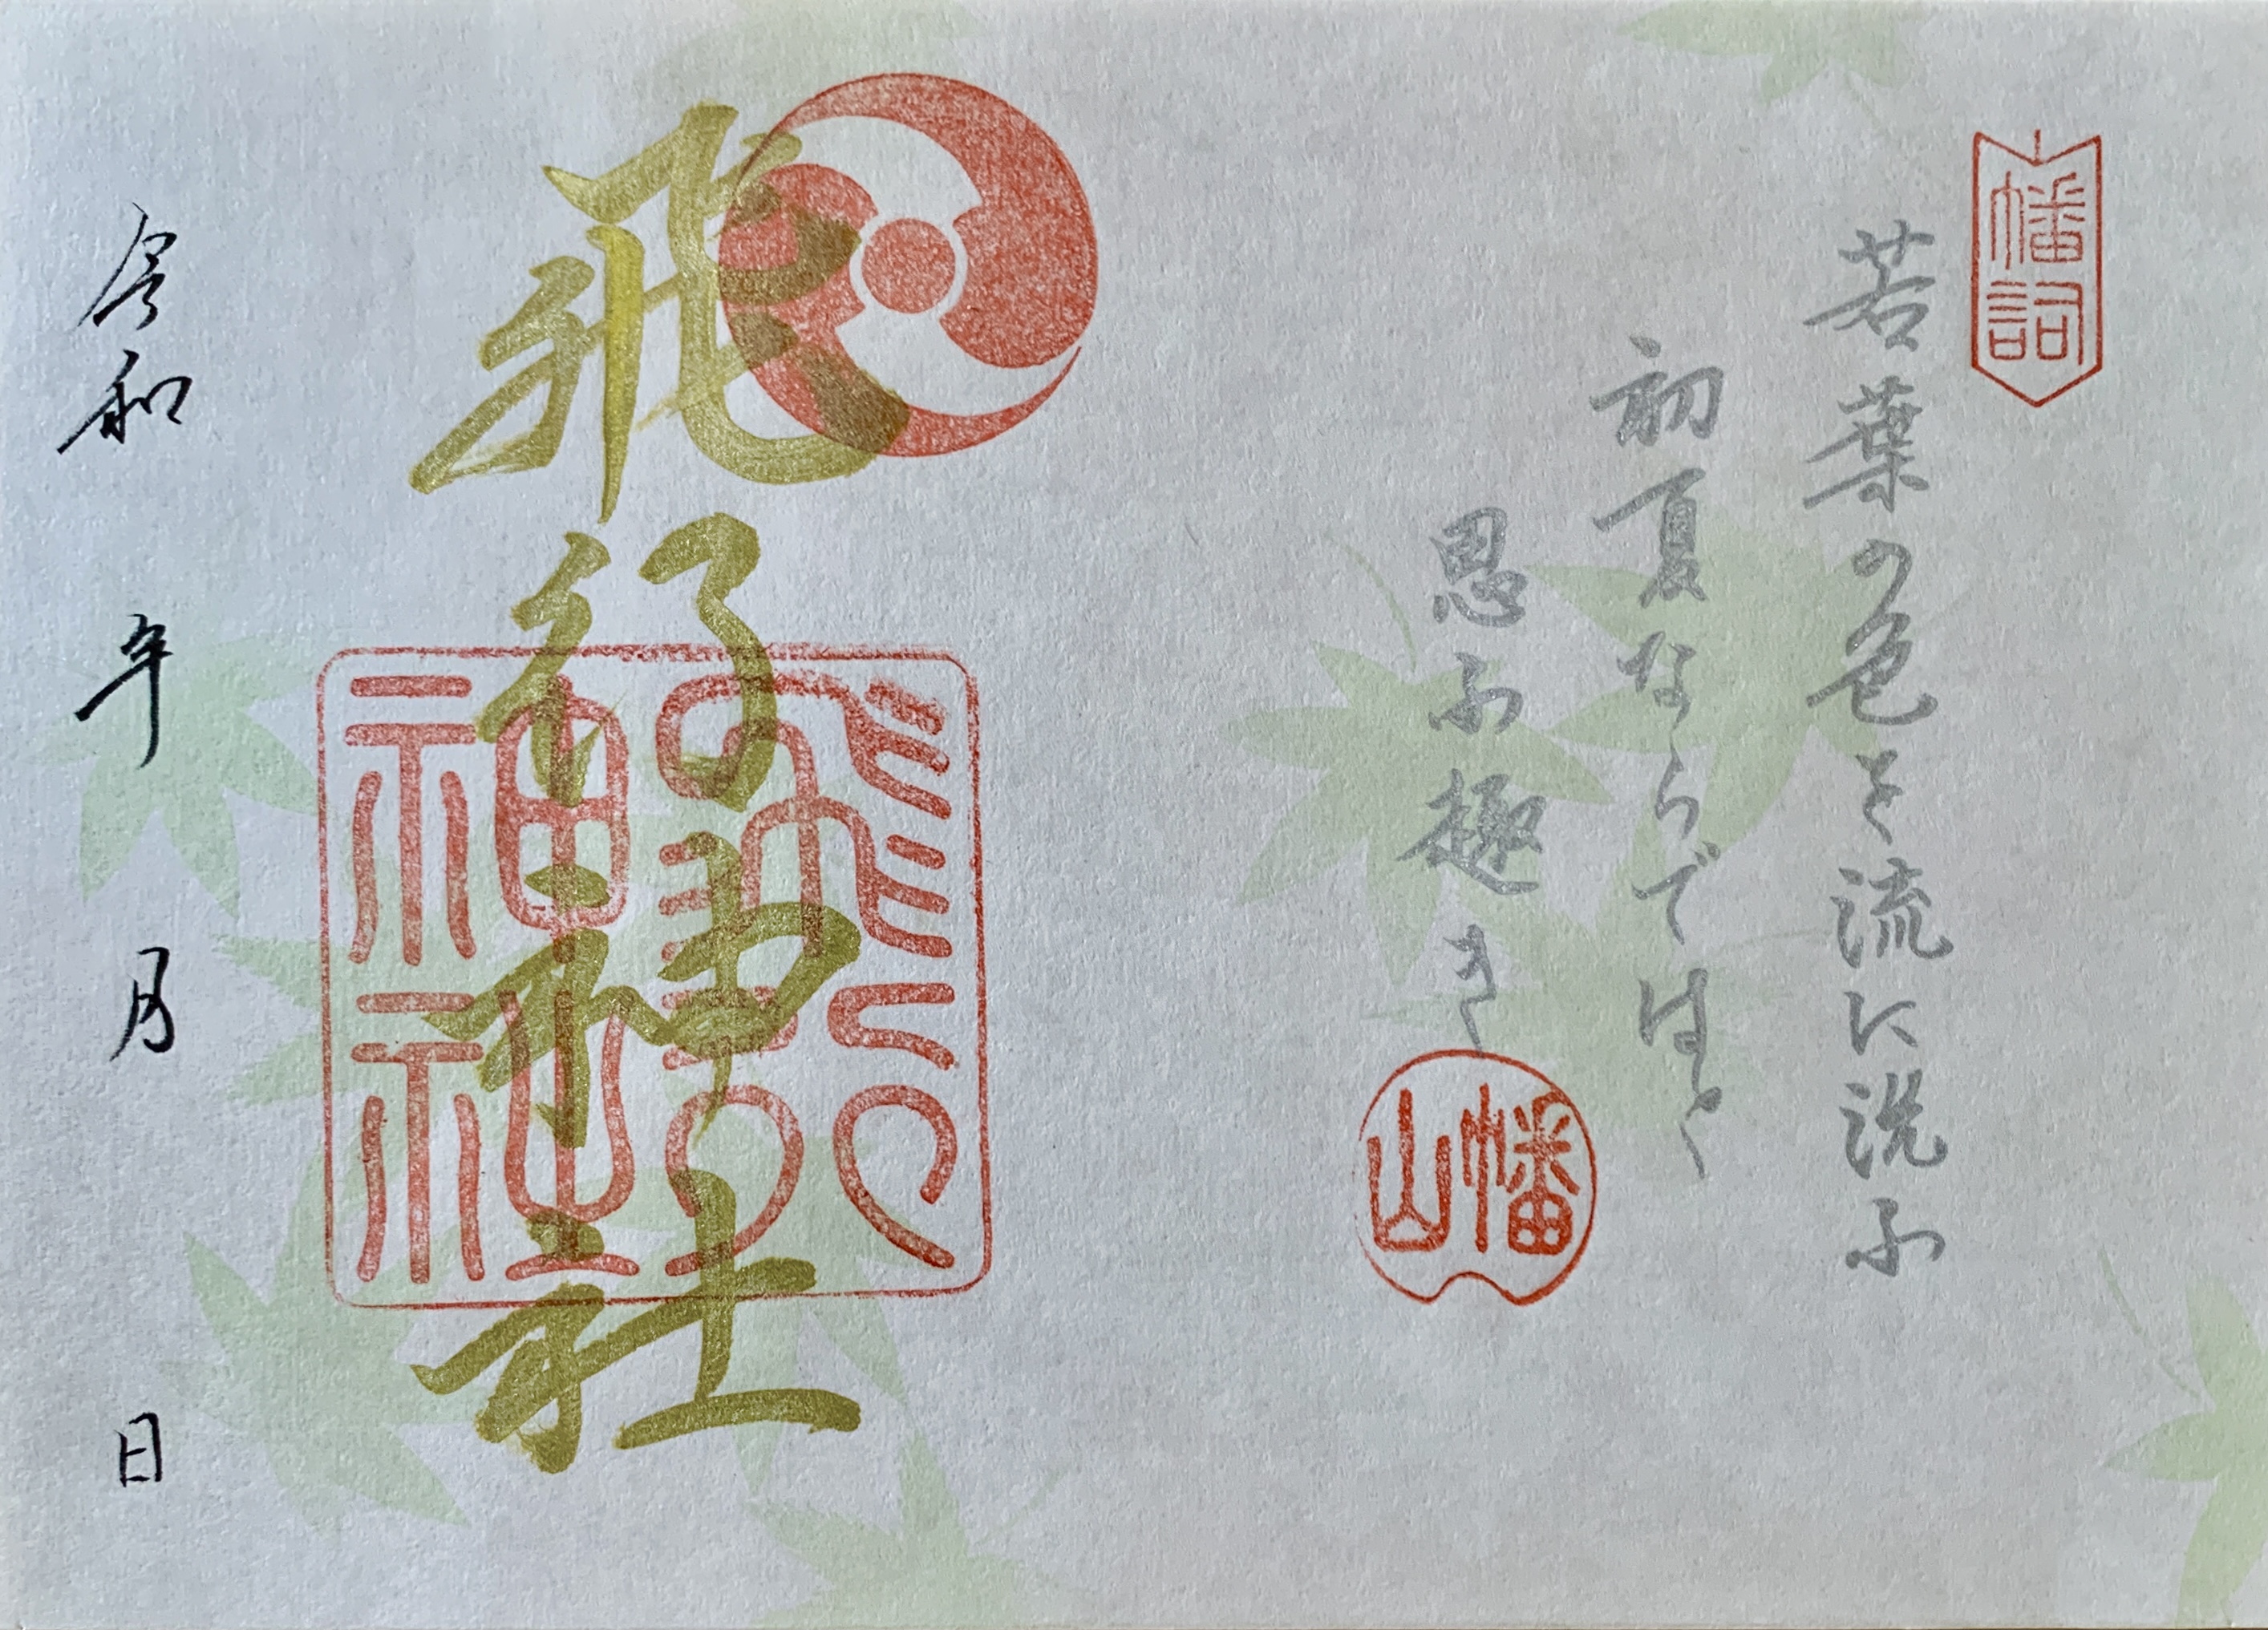 幡詞
若葉の色を流に洗ふ
初夏ならではと
思ふ趣き
幡山
飛行神社
飛行
神社
令和 年 月 日